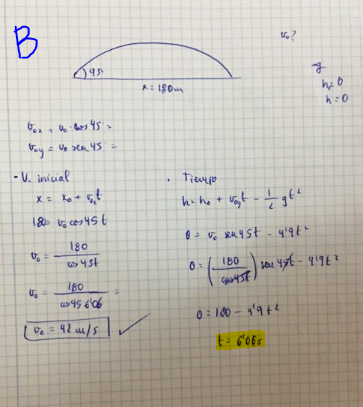 B
v₀?
45
x = 180 m
g
h₀ = 0
h = 0
v₀ₓ = v₀ · cos 45 =
v₀y = v₀ sen 45 =
- V. inicial
x = x₀ + v₀ₓt
180 = v₀ cos 45 t
v₀ = 180 / cos 45 t
v₀ = 180 / cos 45 6'06 =
v₀ = 42 m/s ✓
· Tiempo
h = h₀ + v₀y t - 1/2 g t²
0 = v₀ sen 45 t - 4'9 t²
0 = (180 / cos 45 t) sen 45 t - 4'9 t²
0 = 180 - 4'9 t²
t = 6'06 s